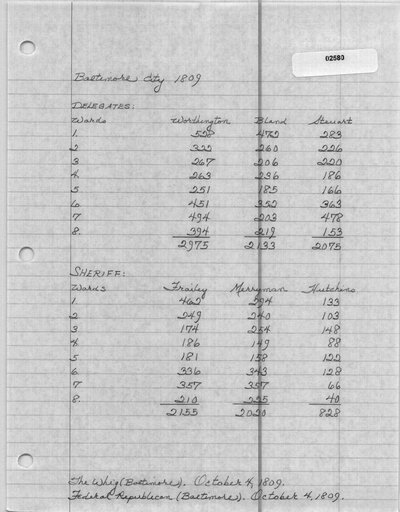 02580
Baltimore City 1809
DELEGATES:
Wards Worthington Bland Steuart
1. 472 283
2 260 226
3 267 206 220
4. 263 236 186
5 251 185 166
6 451 352 363
7 494 203 478
8. 394 219 153
2975 2133 2075
SHERIFF:
Wards Frailey Merryman Hutchens
1 462 294 133
2 249 240 103
3 174 254 148
4 186 149 88
5 181 158 122
6 336 343 128
7 357 357 66
8. 210 225 40
2155 2020 828
The Whig (Baltimore). October 4, 1809.
Federal Republican (Baltimore). October 4, 1809.